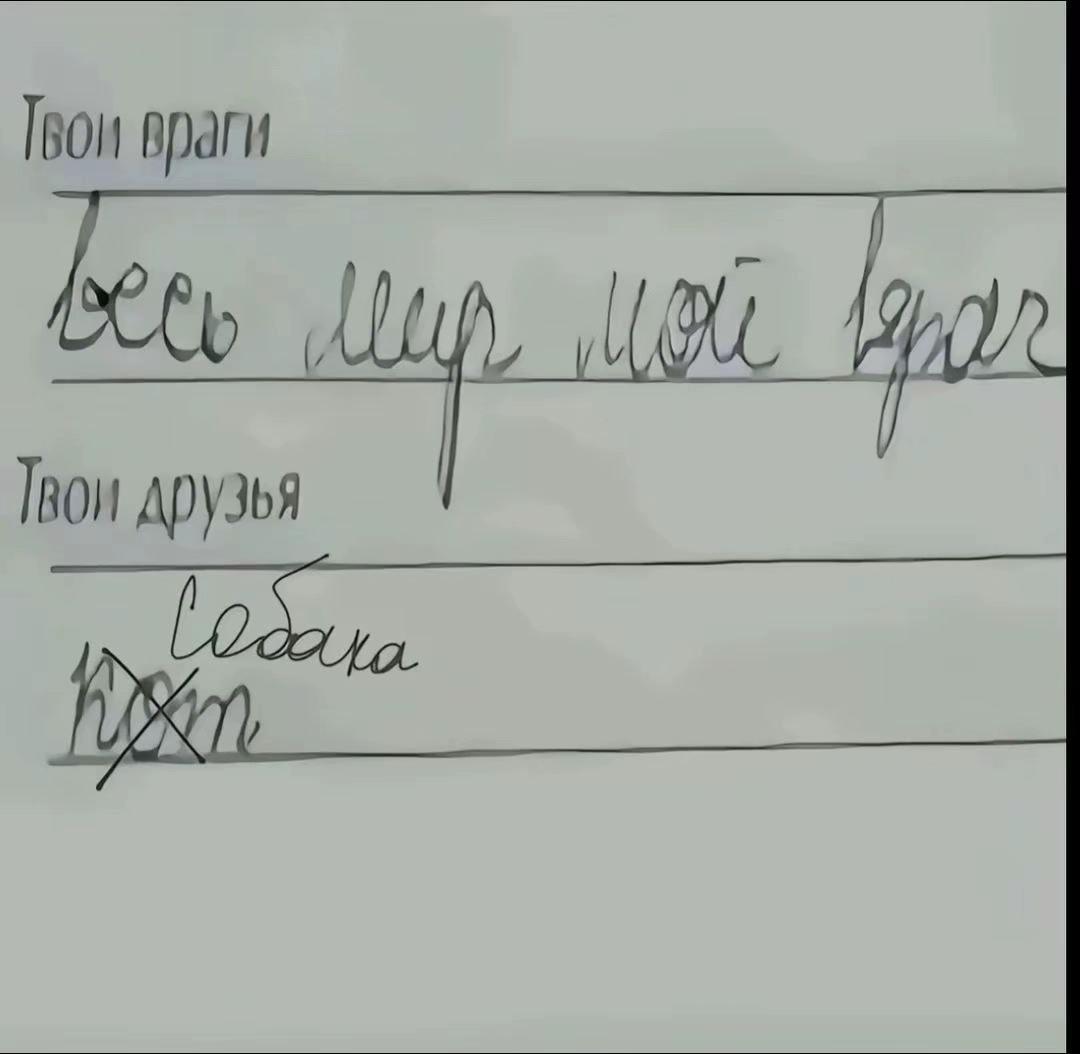 Твои враги
Весь мир мой враг
Твои друзья
Собака
Кот